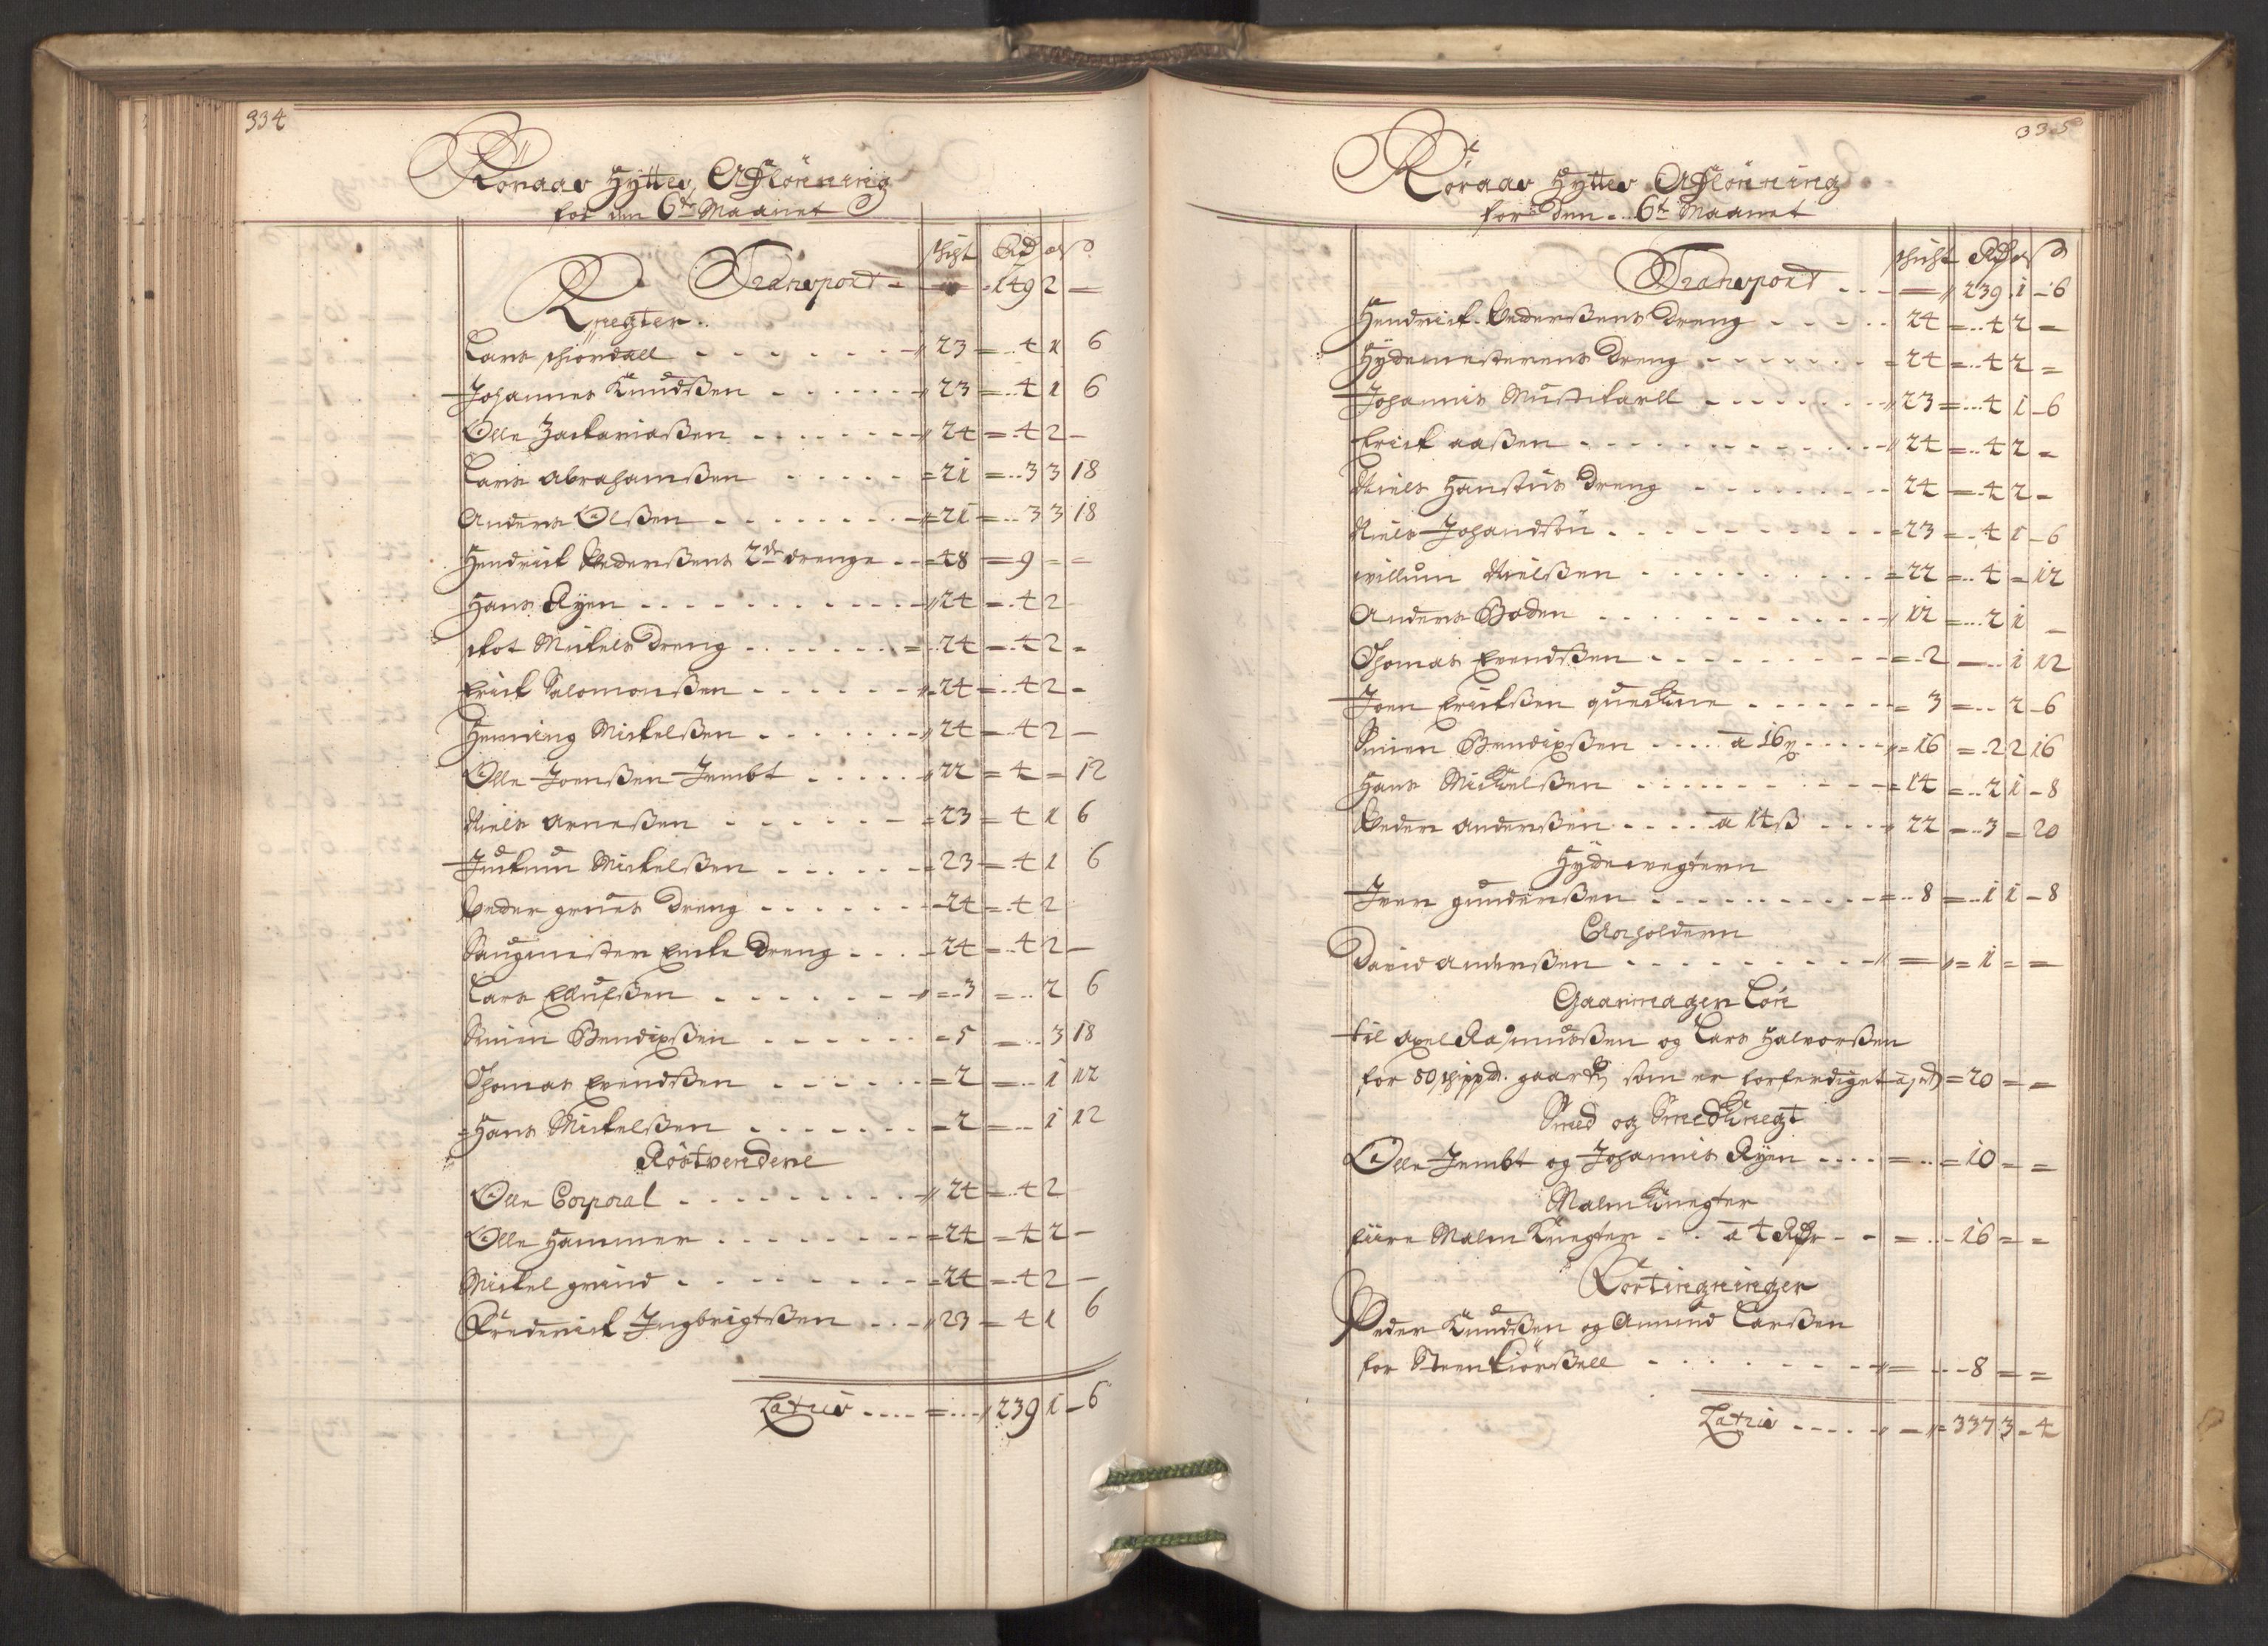 334
Röraas Hytte, Afflönning
for den 6te Maanet
schigt Rd ort s
Transport - 149 2 -
Knegter
Lars schiördall - 23 = 4 1 6
Johannes Knudßen - 23 = 4 1 6
Olle Zackariaßen - 24 = 4 2 -
Lars Abrahamßen - 21 = 3 3 18
Anders Olßen - 21 = 3 3 18
Hendrick Pederßens 2de drenge - 48 = 9 = =
Hans Ryen - 24 = 4 2
skot Mickels Dreng - 24 = 4 2 -
Erick Salomonßen - 24 = 4 2 -
Henning Mickelßen - 24 = 4 2 -
Olle Joenßen Jembt - 22 = 4 = 12
Niels Arneßen - 23 = 4 1 6
Juckum Mickelßen - 23 = 4 1 6
Peder grues Dreng - 24 = 4 2
Saugmester Encke Dreng - 24 = 4 2 -
Lars Ellufßen - 3 = 2 6
Simen Bendixßen - 5 = 3 18
Thomas Evendßen - 2 = 1 12
Hans Mickelßen - 2 = 1 12
Röstvendere
Olle Corporal - 24 = 4 2
Olle Hammer - 24 = 4 2 -
Mickel grind - 24 = 4 2 -
Frederick Ingbrigtßen - 23 = 4 1 6
Latus - 239 1 - 6
335
Röraas Hytte Afflönning
for den 6te Maanet
schicht Rdr ort s
Transport - 239 1 - 6
Hendrick Pederßens Dreng - 24 = 4 2 =
Hydemesterens Dreng - 24 = 4 2 =
Johannis Mustikarll - 23 = 4 1 - 6
Erick aaßen - 24 = 4 2 =
Niels Hanstus Dreng - 24 = 4 2 -
Niels Johandsön - 23 = 4 1 - 6
willum Nielßen - 22 = 4 = 12
Anders Boden - 12 = 2 1 -
Thomas Evendßen - 2 - 1 12
Joen Erickßen quekne - 3 = 2 - 6
Simen Bendixßen a 16 s - 16 = 2 2 16
Hans Mickelßen - 14 = 2 1 - 8
Peder Anderßen a 14 ß - 22 = 3 = 20
Hydewegtern
Iver gunderßen - 8 = 1 1 - 8
David Anderßen - = 1 = =
Gaarmager Lön
til Axel Rasmusßen og Lars Halvorßen
for 80 schippd. gaark som er forferdiget a 1 ort = 20 = =
Smed og Smedknegt
Olle Jembt og Johannis Ryen - = 10 = =
Malmknegter
fiire Malm Knegter a 4 Rdr - = 16 = =
Fortingninger
Peder Knudßen og Amund Larßen
for Steenkiörßell - 8 = =
Latus - 337 3 - 4